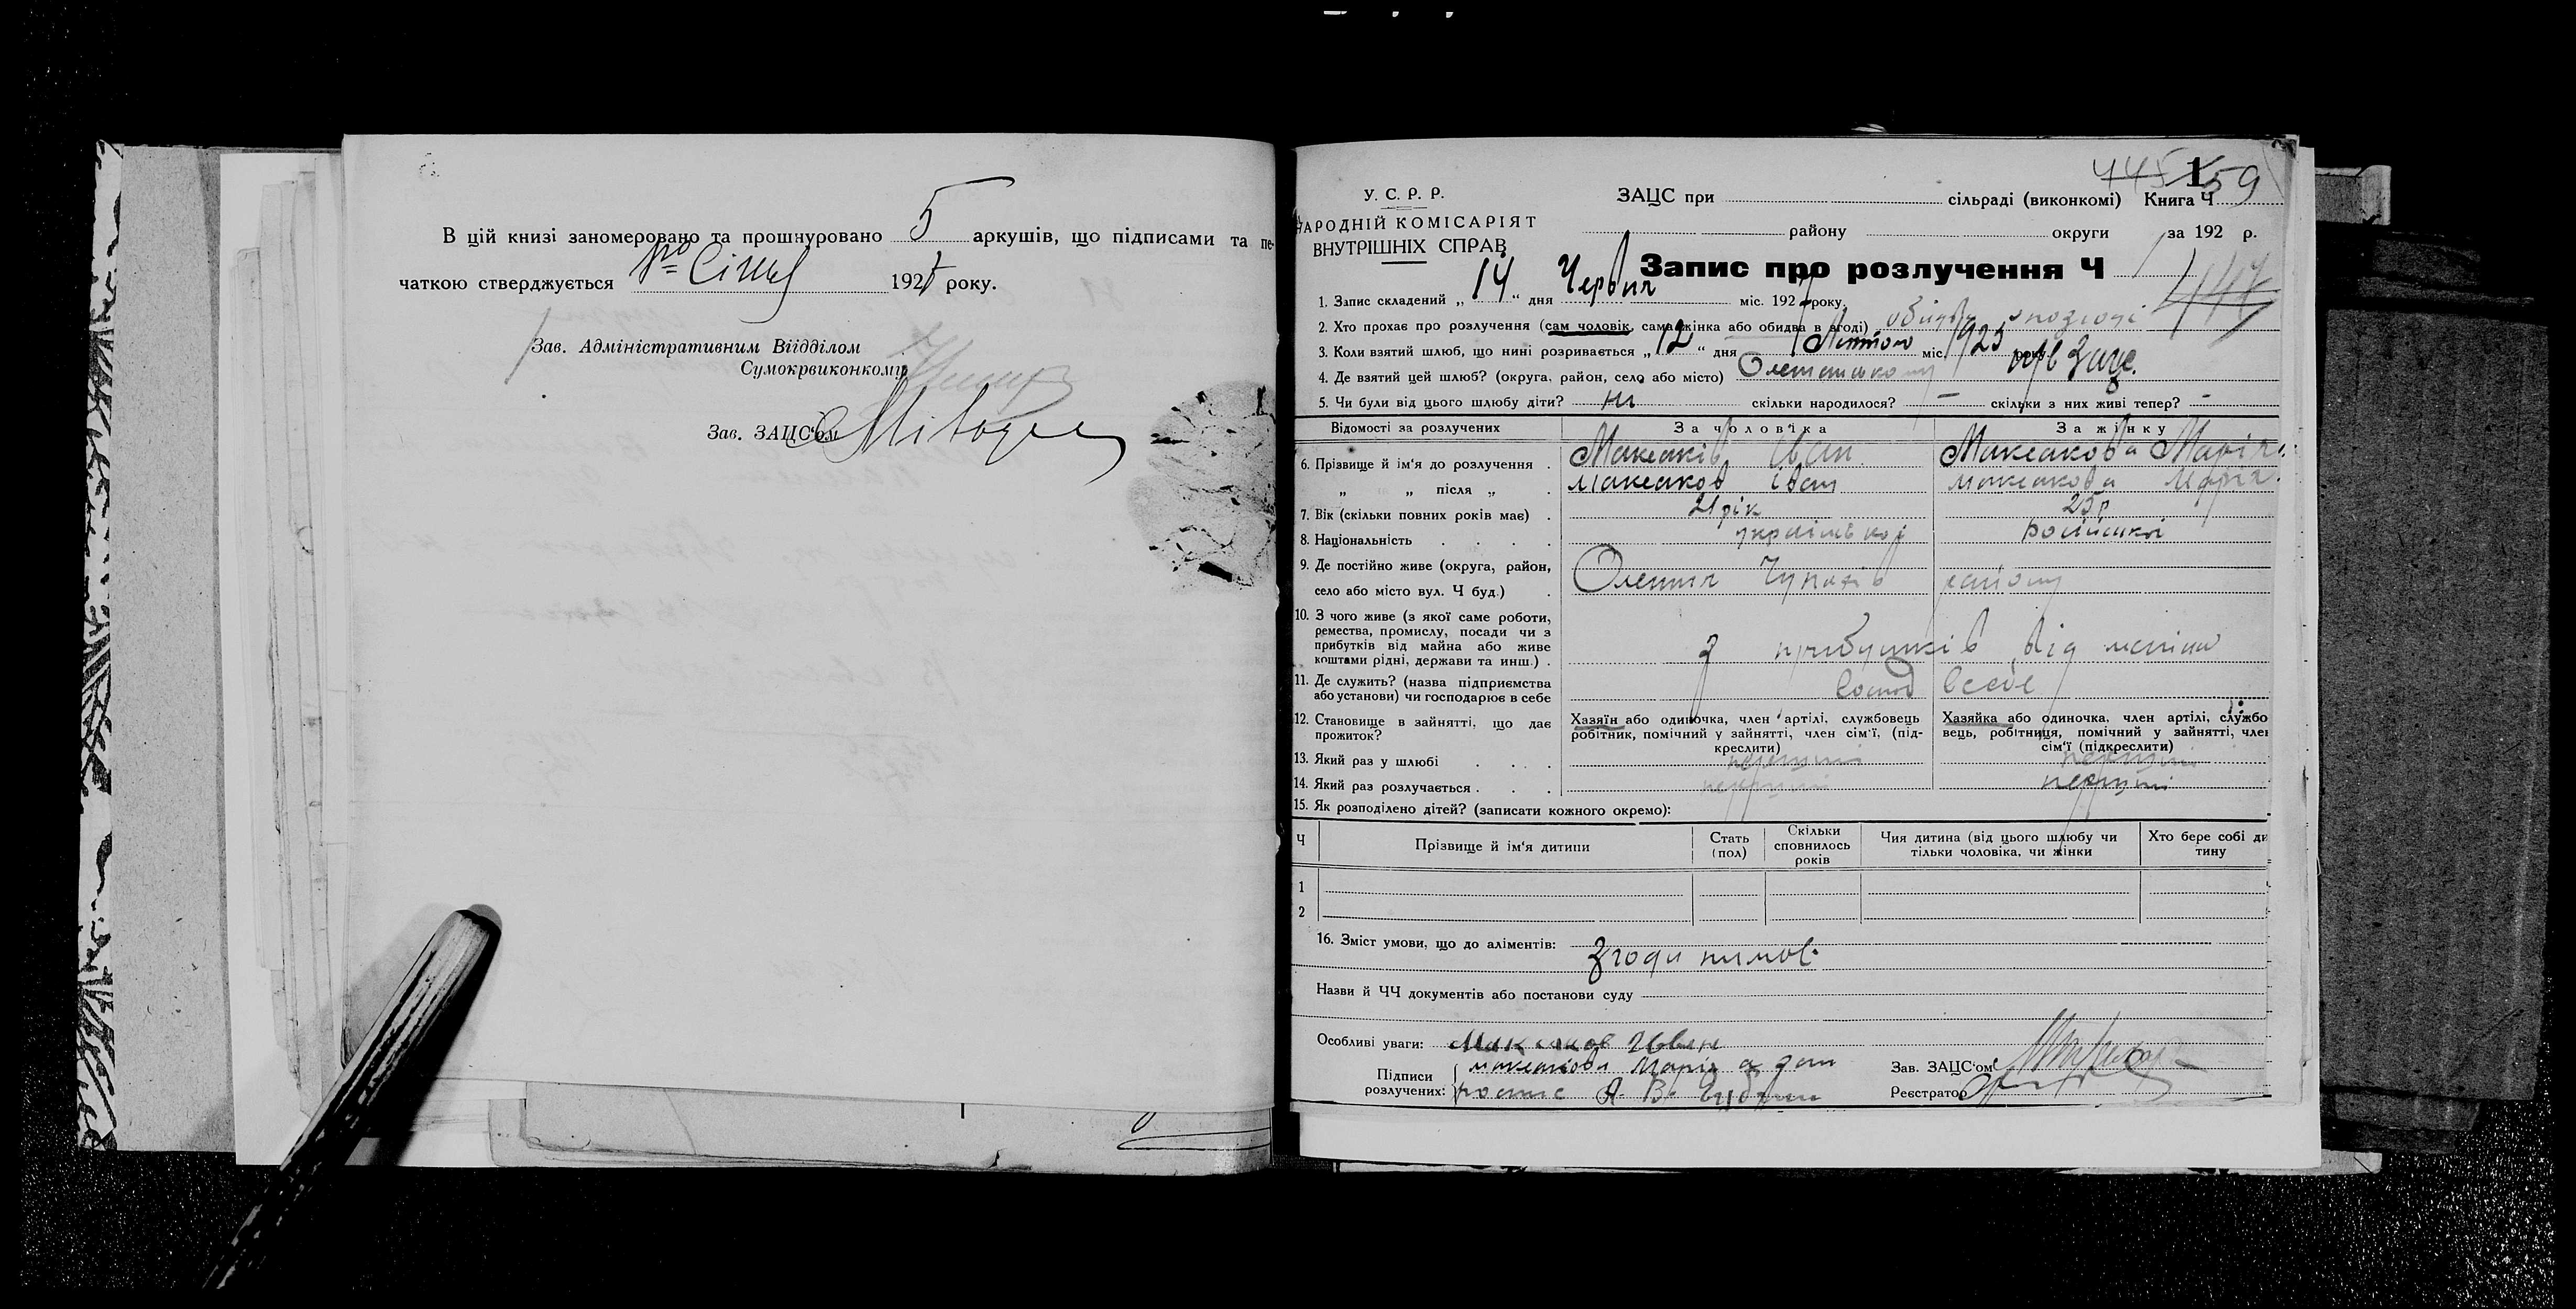 В цій книзі заномеровано та прошнуровано 5 аркушів, що підписами та пе-
чаткою стверджується Січня 192 року.
Зав. Адміністративним Віїдділом
Сумокрвиконкому
Зав. ЗАЦС'ом
445 1 59
У. С. Р. Р.
НАРОДНІЙ КОМІСАРІЯТ
ВНУТРІШНІХ СПРАВ
ЗАЦС при сільраді (виконкомі) Книга Ч
району округи за 192 р.
Запис про розлучення Ч 1
447
1. Запис складений „ 14 “ дня Червня міс. 192 року.
2. Хто прохає про розлучення (сам чоловік, сама жінка або обидва в згоді) обидва
3. Коли взятий шлюб, що нині розривається „ 12 “ дня Лютого міс. 1925 року
4. Де взятий цей шлюб? (округа, район, село або місто)
5. Чи були від цього шлюбу діти? ні скільки народилося? — скільки з них живі тепер? -
Відомості за розлучених За чоловіка За жінку
6. Прізвище й ім'я до розлучення . Максаків Іван Максакова Марія
„ „ після „ . Максаков Іван Максакова Марія
7. Вік (скільки повних років має) . 21 рік 25 р
8. Національність . . . . української російської
9. Де постійно живе (округа, район,
село або місто вул. Ч буд.) . району
10. З чого живе (з якої саме роботи,
ремества, промислу, посади чи з
прибутків від майна або живе
коштами рідні, держави та инш.) . з прибутків від
11. Де служить? (назва підприємства
або установи) чи господарює в себе Господ в себе
12. Становище в зайнятті, що дає
прожиток?
Хазяїн або одиночка, член артілі, службовець
робітник, помічний у зайнятті, член сім'ї, (під-
креслити)
Хазяйка або одиночка, член артілі, службо
вець, робітниця, помічний у зайнятті, член
сім'ї (підкреслити)
13. Який раз у шлюбі . . . перший перший
14. Який раз розлучається . . . перший перший
15. Як розподілено дітей? (записати кожного окремо):
Ч Прізвище й ім'я дитини Стать (пол) Скільки сповнилось років Чия дитина (від цього шлюбу чи тільки чоловіка, чи жінки Хто бере собі ди тину
1
2
16. Зміст умови, що до аліментів:
Згоди
Назви й ЧЧ документів або постанови суду
Особливі уваги: Максаков
Підписи
розлучених: Максакова Марія а
Зав. ЗАЦС'ом
Реєстратор